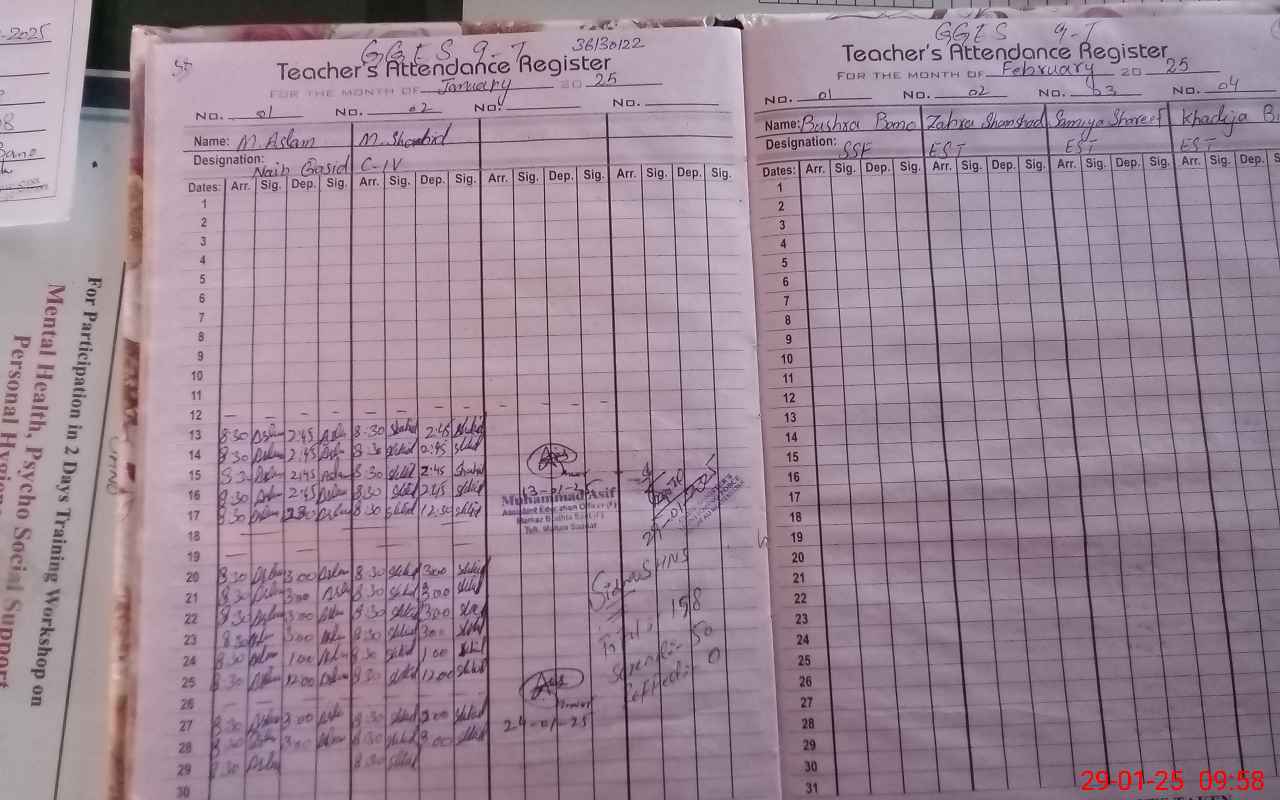 -2025
GGES 9-T 36130122
Teacher's Attendance Register
FOR THE MONTH OF January 20 25
No. 01 No. 02 No. No.
Name: M. Aslam M. Shahid
Designation: Naib Qasid C-IV
Dates: Arr. Sig. Dep. Sig. Arr. Sig. Dep. Sig. Arr. Sig. Dep. Sig. Arr. Sig. Dep. Sig.
1
2
3
4
5
6
7
8
9
10
11
12 — — — — — — — — - - - -
13 8:30 Aslam 2:45 Aslam 8:30 Shahid 2:45 Shahid
14 8:30 Aslam 2:45 Aslam 8:30 Shahid 2:45 Shahid
15 Aslam 2:45 Aslam 8:30 Shahid 2:45 Shahid
16 8:30 Aslam 2:45 Aslam 8:30 Shahid 2:45 Shahid
17 8:30 Aslam 12:30 Aslam 8:30 Shahid 12:30 Shahid
18
19
20 8:30 Aslam 3:00 Aslam 8:30 Shahid 3:00 Shahid
21 8:30 Aslam 3:00 Aslam 8:30 Shahid 3:00 Shahid
22 8:30 Aslam 3:00 Aslam 8:30 Shahid 3:00 Shahid
23 8:30 Aslam 3:00 Aslam 8:30 Shahid 3:00 Shahid
24 8:30 Aslam 1:00 Aslam 8:30 Shahid 1:00 Shahid
25 8:30 Aslam 12:00 Aslam 8:30 Shahid 12:00 Shahid
26
27 8:30 Aslam 3:00 Aslam 8:30 Shahid 3:00 Shahid
28 8:30 Aslam 3:00 Aslam 8:30 Shahid 3:00 Shahid
29 8:30 Aslam 8:30 Shahid
30
13-01-25
Muhammad Asif
Assistant Education Officer
24-01-25
SHNS
Total: 158
Screened: 50
0
GGES 9-T
Teacher's Attendance Register
FOR THE MONTH OF February 20 25
No. 01 No. 02 No. 03 No. 04
Name: Bushra Bano Zahra Shamshad Samiya Shareef Khadija
Designation: SSE EST EST EST
Dates: Arr. Sig. Dep. Sig. Arr. Sig. Dep. Sig. Arr. Sig. Dep. Sig. Arr. Sig. Dep.
1
2
3
4
5
6
7
8
9
10
11
12
13
14
15
16
17
18
19
20
21
22
23
24
25
26
27
28
29
30
31
For Participation in 2 Days Training Workshop on
Mental Health, Psycho Social Support
Personal Hygiene
29-01-25 09:58